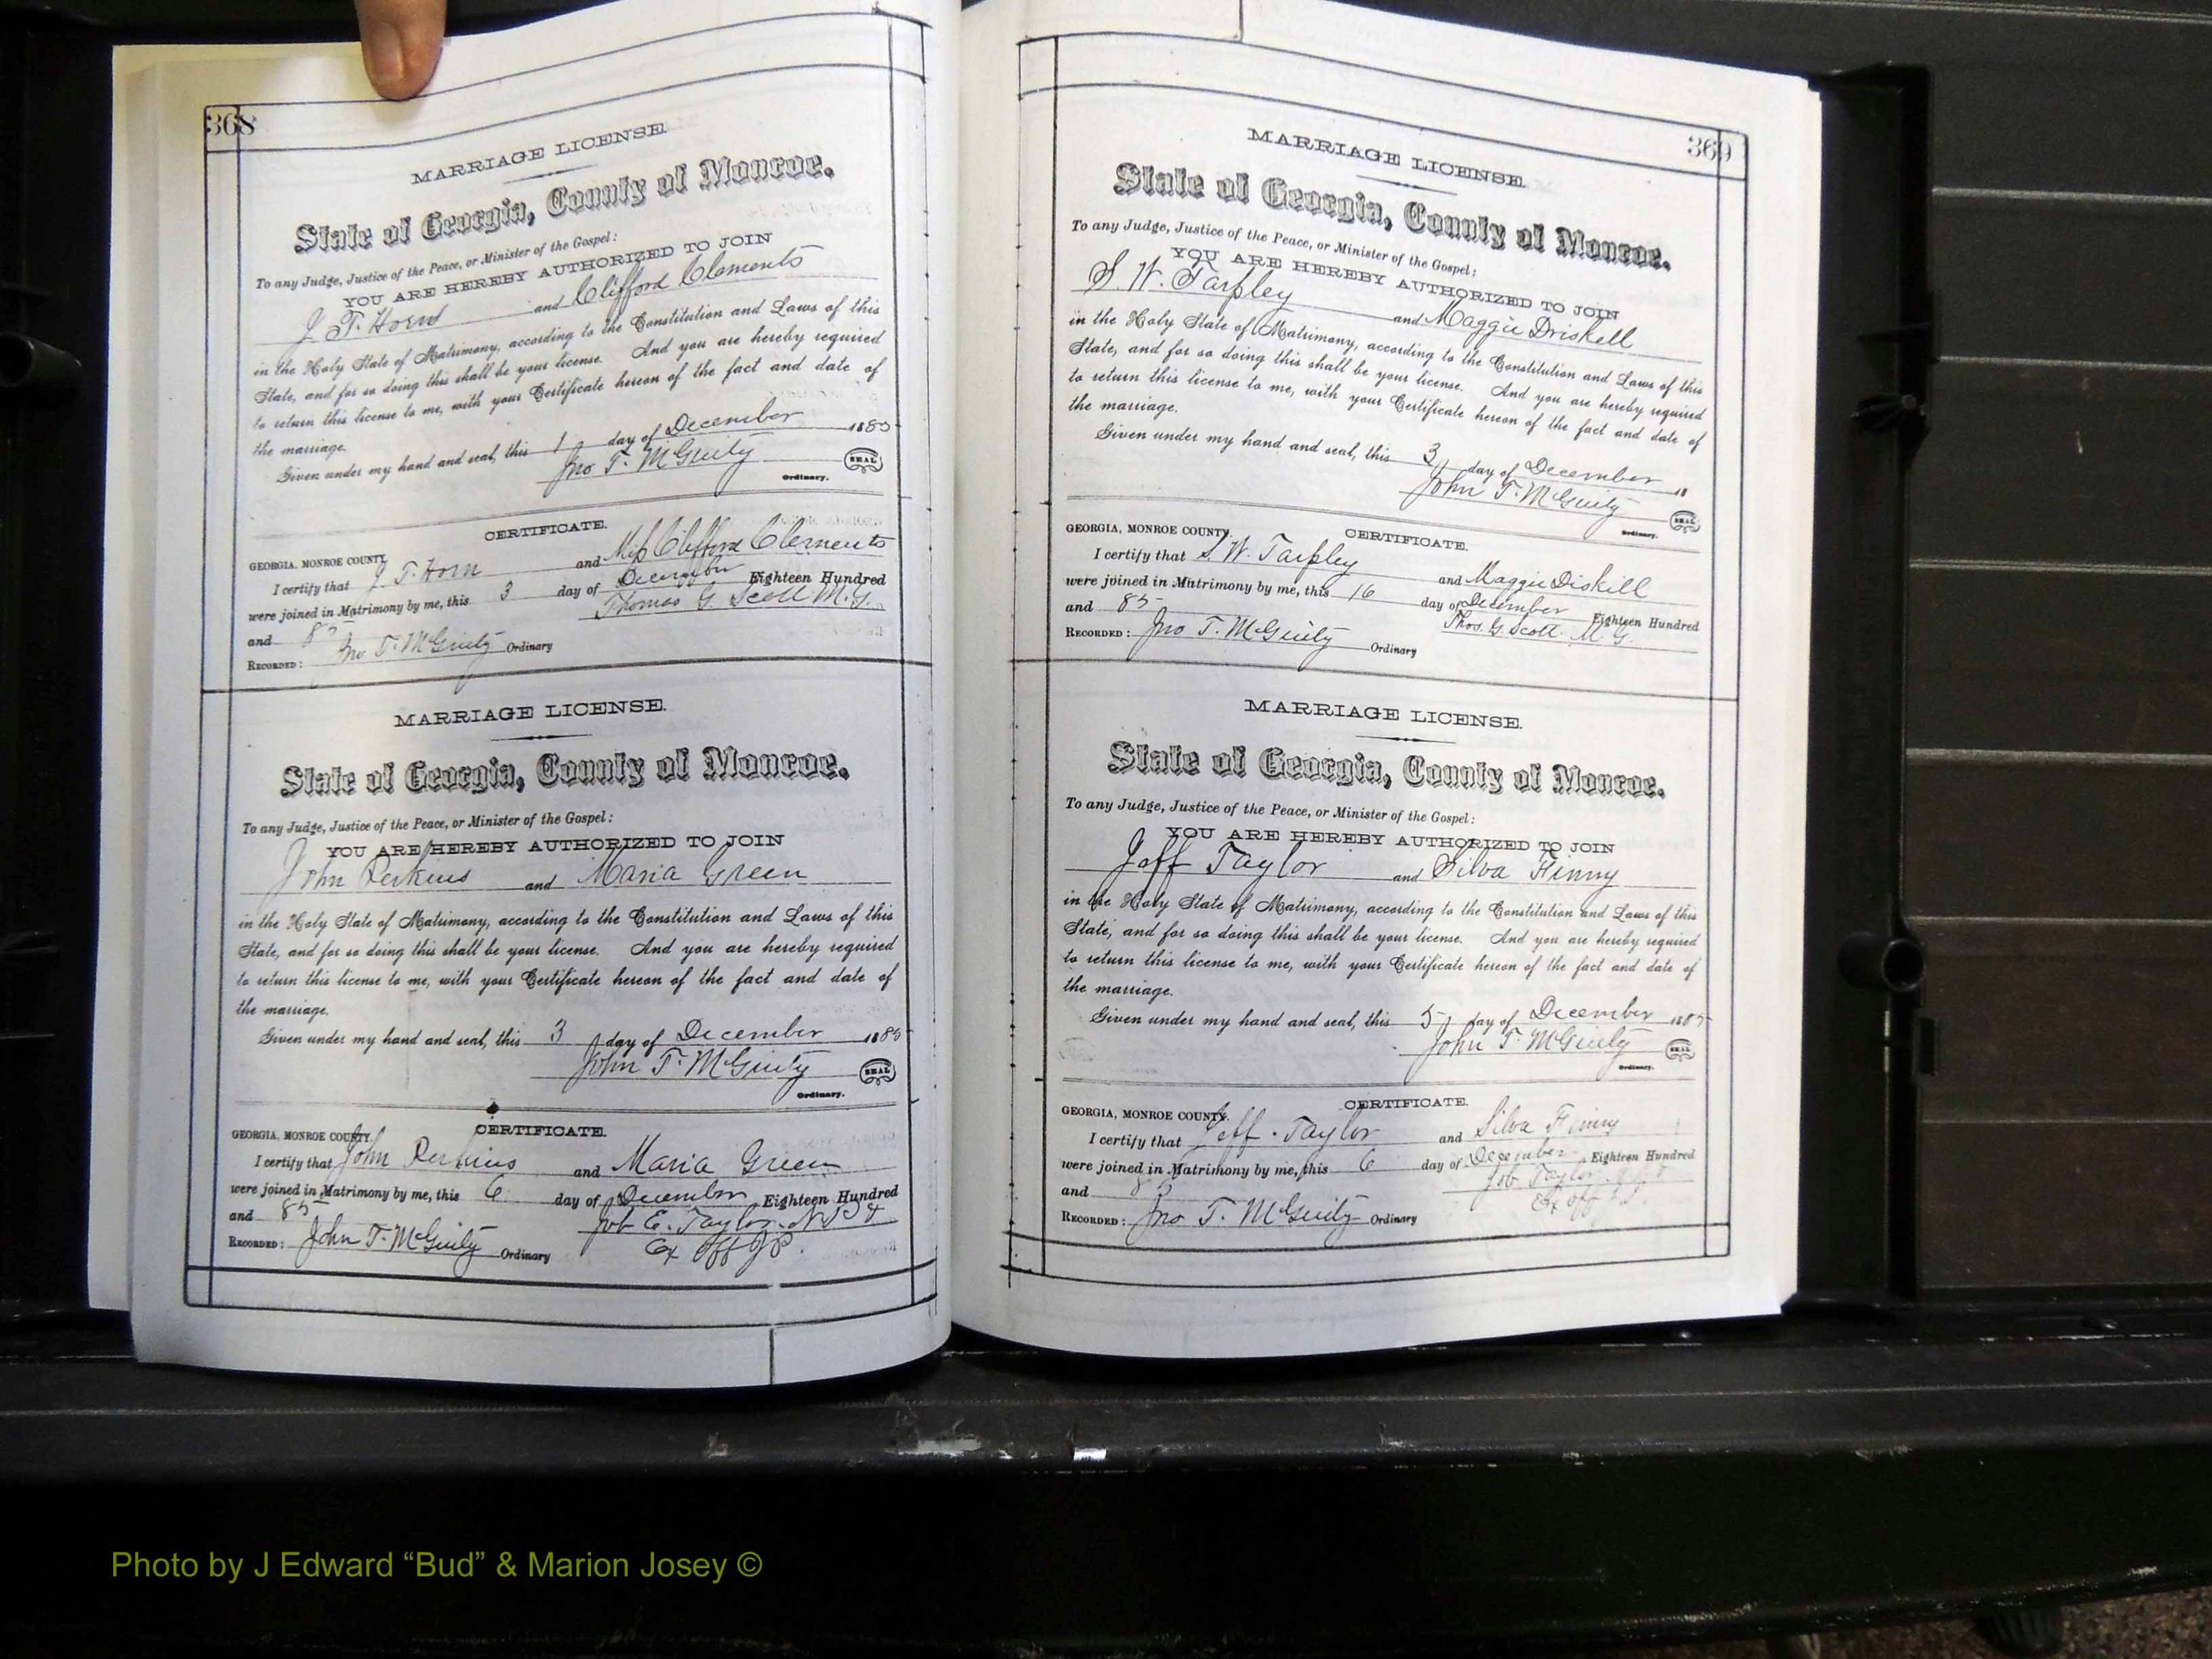 368
MARRIAGE LICENSE.
State of Georgia, County of Monroe.
To any Judge, Justice of the Peace, or Minister of the Gospel:
YOU ARE HEREBY AUTHORIZED TO JOIN
J. T. Horn and Clifford Clements
in the Holy State of Matrimony, according to the Constitution and Laws of this
State, and for so doing this shall be your license. And you are hereby required
to return this license to me, with your Certificate hereon of the fact and date of
the marriage.
Given under my hand and seal, this 1 day of December 1885
Jno T. McGinty SEAL
Ordinary.
CERTIFICATE.
GEORGIA, MONROE COUNTY.
I certify that J. T. Horn and Miss Clifford Clements
were joined in Matrimony by me, this 3 day of December Eighteen Hundred
and 85 Thomas G. Scott M.G.
RECORDED: Jno T. McGinty Ordinary
MARRIAGE LICENSE.
State of Georgia, County of Monroe.
To any Judge, Justice of the Peace, or Minister of the Gospel:
YOU ARE HEREBY AUTHORIZED TO JOIN
John Perkins and Maria Green
in the Holy State of Matrimony, according to the Constitution and Laws of this
State, and for so doing this shall be your license. And you are hereby required
to return this license to me, with your Certificate hereon of the fact and date of
the marriage.
Given under my hand and seal, this 3 day of December 1885
John T. McGinty SEAL
Ordinary.
CERTIFICATE.
GEORGIA, MONROE COUNTY.
I certify that John Perkins and Maria Green
were joined in Matrimony by me, this 6 day of December Eighteen Hundred
and 85 Job E. Taylor N.P. &
RECORDED: John T. McGinty Ordinary Ex Off J P.
369
MARRIAGE LICENSE.
State of Georgia, County of Monroe.
To any Judge, Justice of the Peace, or Minister of the Gospel:
YOU ARE HEREBY AUTHORIZED TO JOIN
S. W. Tarpley and Maggie Driskell
in the Holy State of Matrimony, according to the Constitution and Laws of this
State, and for so doing this shall be your license. And you are hereby required
to return this license to me, with your Certificate hereon of the fact and date of
the marriage.
Given under my hand and seal, this 3 day of December 18
John T. McGinty SEAL
Ordinary.
CERTIFICATE.
GEORGIA, MONROE COUNTY.
I certify that S. W. Tarpley and Maggie Diskill
were joined in Matrimony by me, this 16 day of December Eighteen Hundred
and 85 Thos. G. Scott M. G.
RECORDED: Jno T. McGinty Ordinary
MARRIAGE LICENSE.
State of Georgia, County of Monroe.
To any Judge, Justice of the Peace, or Minister of the Gospel:
YOU ARE HEREBY AUTHORIZED TO JOIN
Jeff Taylor and Silva Finny
in the Holy State of Matrimony, according to the Constitution and Laws of this
State, and for so doing this shall be your license. And you are hereby required
to return this license to me, with your Certificate hereon of the fact and date of
the marriage.
Given under my hand and seal, this 5 day of December 1885
John T. McGinty SEAL
Ordinary.
CERTIFICATE.
GEORGIA, MONROE COUNTY.
I certify that Jeff Taylor and Silva Finny
were joined in Matrimony by me, this 6 day of December Eighteen Hundred
and 85 Job Taylor
Ex Off J.P.
RECORDED: Jno T. McGinty Ordinary
Photo by J Edward “Bud” & Marion Josey ©